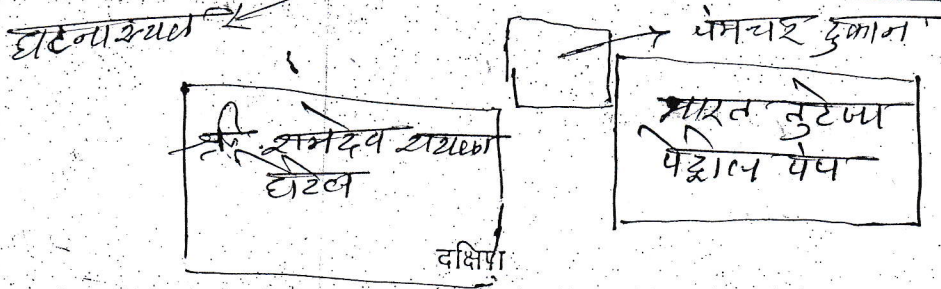 घटनास्थल
पंमचर दुकान
श्री. रामदेव रायल
होटल
भारत तुटेजा
पेट्रोल पंप
दक्षिण